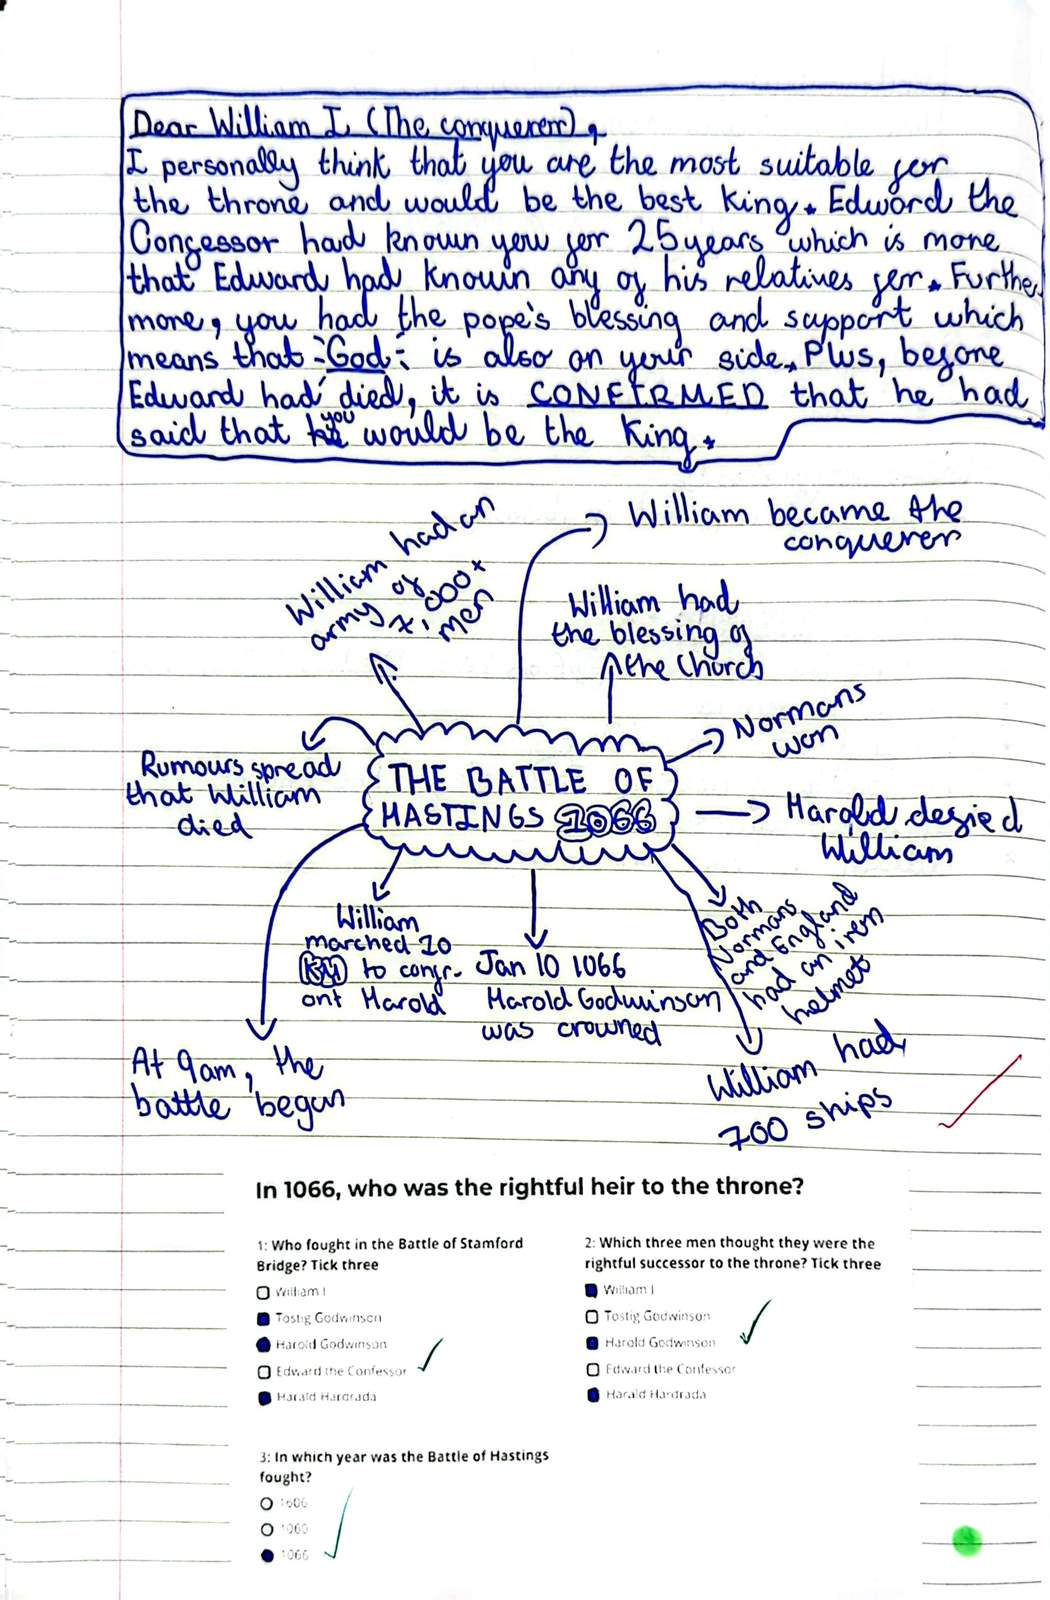 Dear William I (The conquerer),
I personally think that you are the most suitable for
the throne and would be the best King. Edward the
Confessor had known you for 25 years which is more
that Edward had known any of his relatives for. Further
more, you had the pope's blessing and support which
means that God is also on your side. Plus, before
Edward had died, it is CONFIRMED that he had
said that you would be the King.
William had an
army of
7,000+
men
William became the
conquerer
William had
the blessing of
the Church
Normans
won
Rumours spread
that William
died
THE BATTLE OF
HASTINGS 1066
Harold defied
William
William
marched 10
KM to confr-
ont Harold
Jan 10 1066
Harold Godwinson
was crowned
Both
Normans
and England
had an iron
helmet
At 9am, the
battle began
William had
700 ships
In 1066, who was the rightful heir to the throne?
1: Who fought in the Battle of Stamford
Bridge? Tick three
William I
Tostig Godwinson
Harold Godwinson
Edward the Confessor
Harald Hardrada
2: Which three men thought they were the
rightful successor to the throne? Tick three
William I
Tostig Godwinson
Harold Godwinson
Edward the Confessor
Harald Hardrada
3: In which year was the Battle of Hastings
fought?
1606
1066